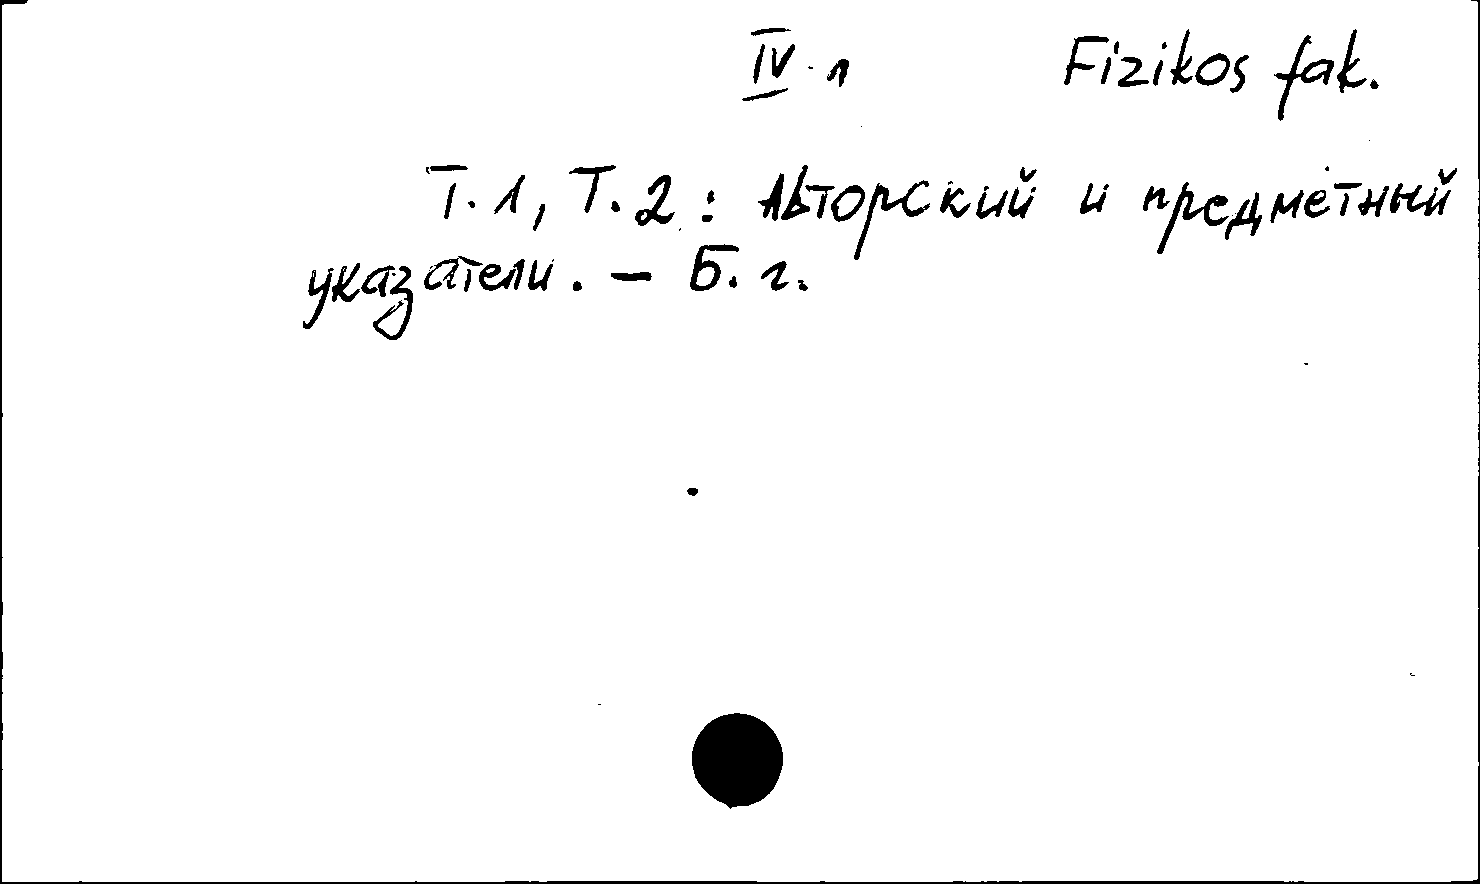 IV. 1 Fizikos fak.
Т. 1, Т. 2 : Авторский и предметный
указатели. — Б. г.